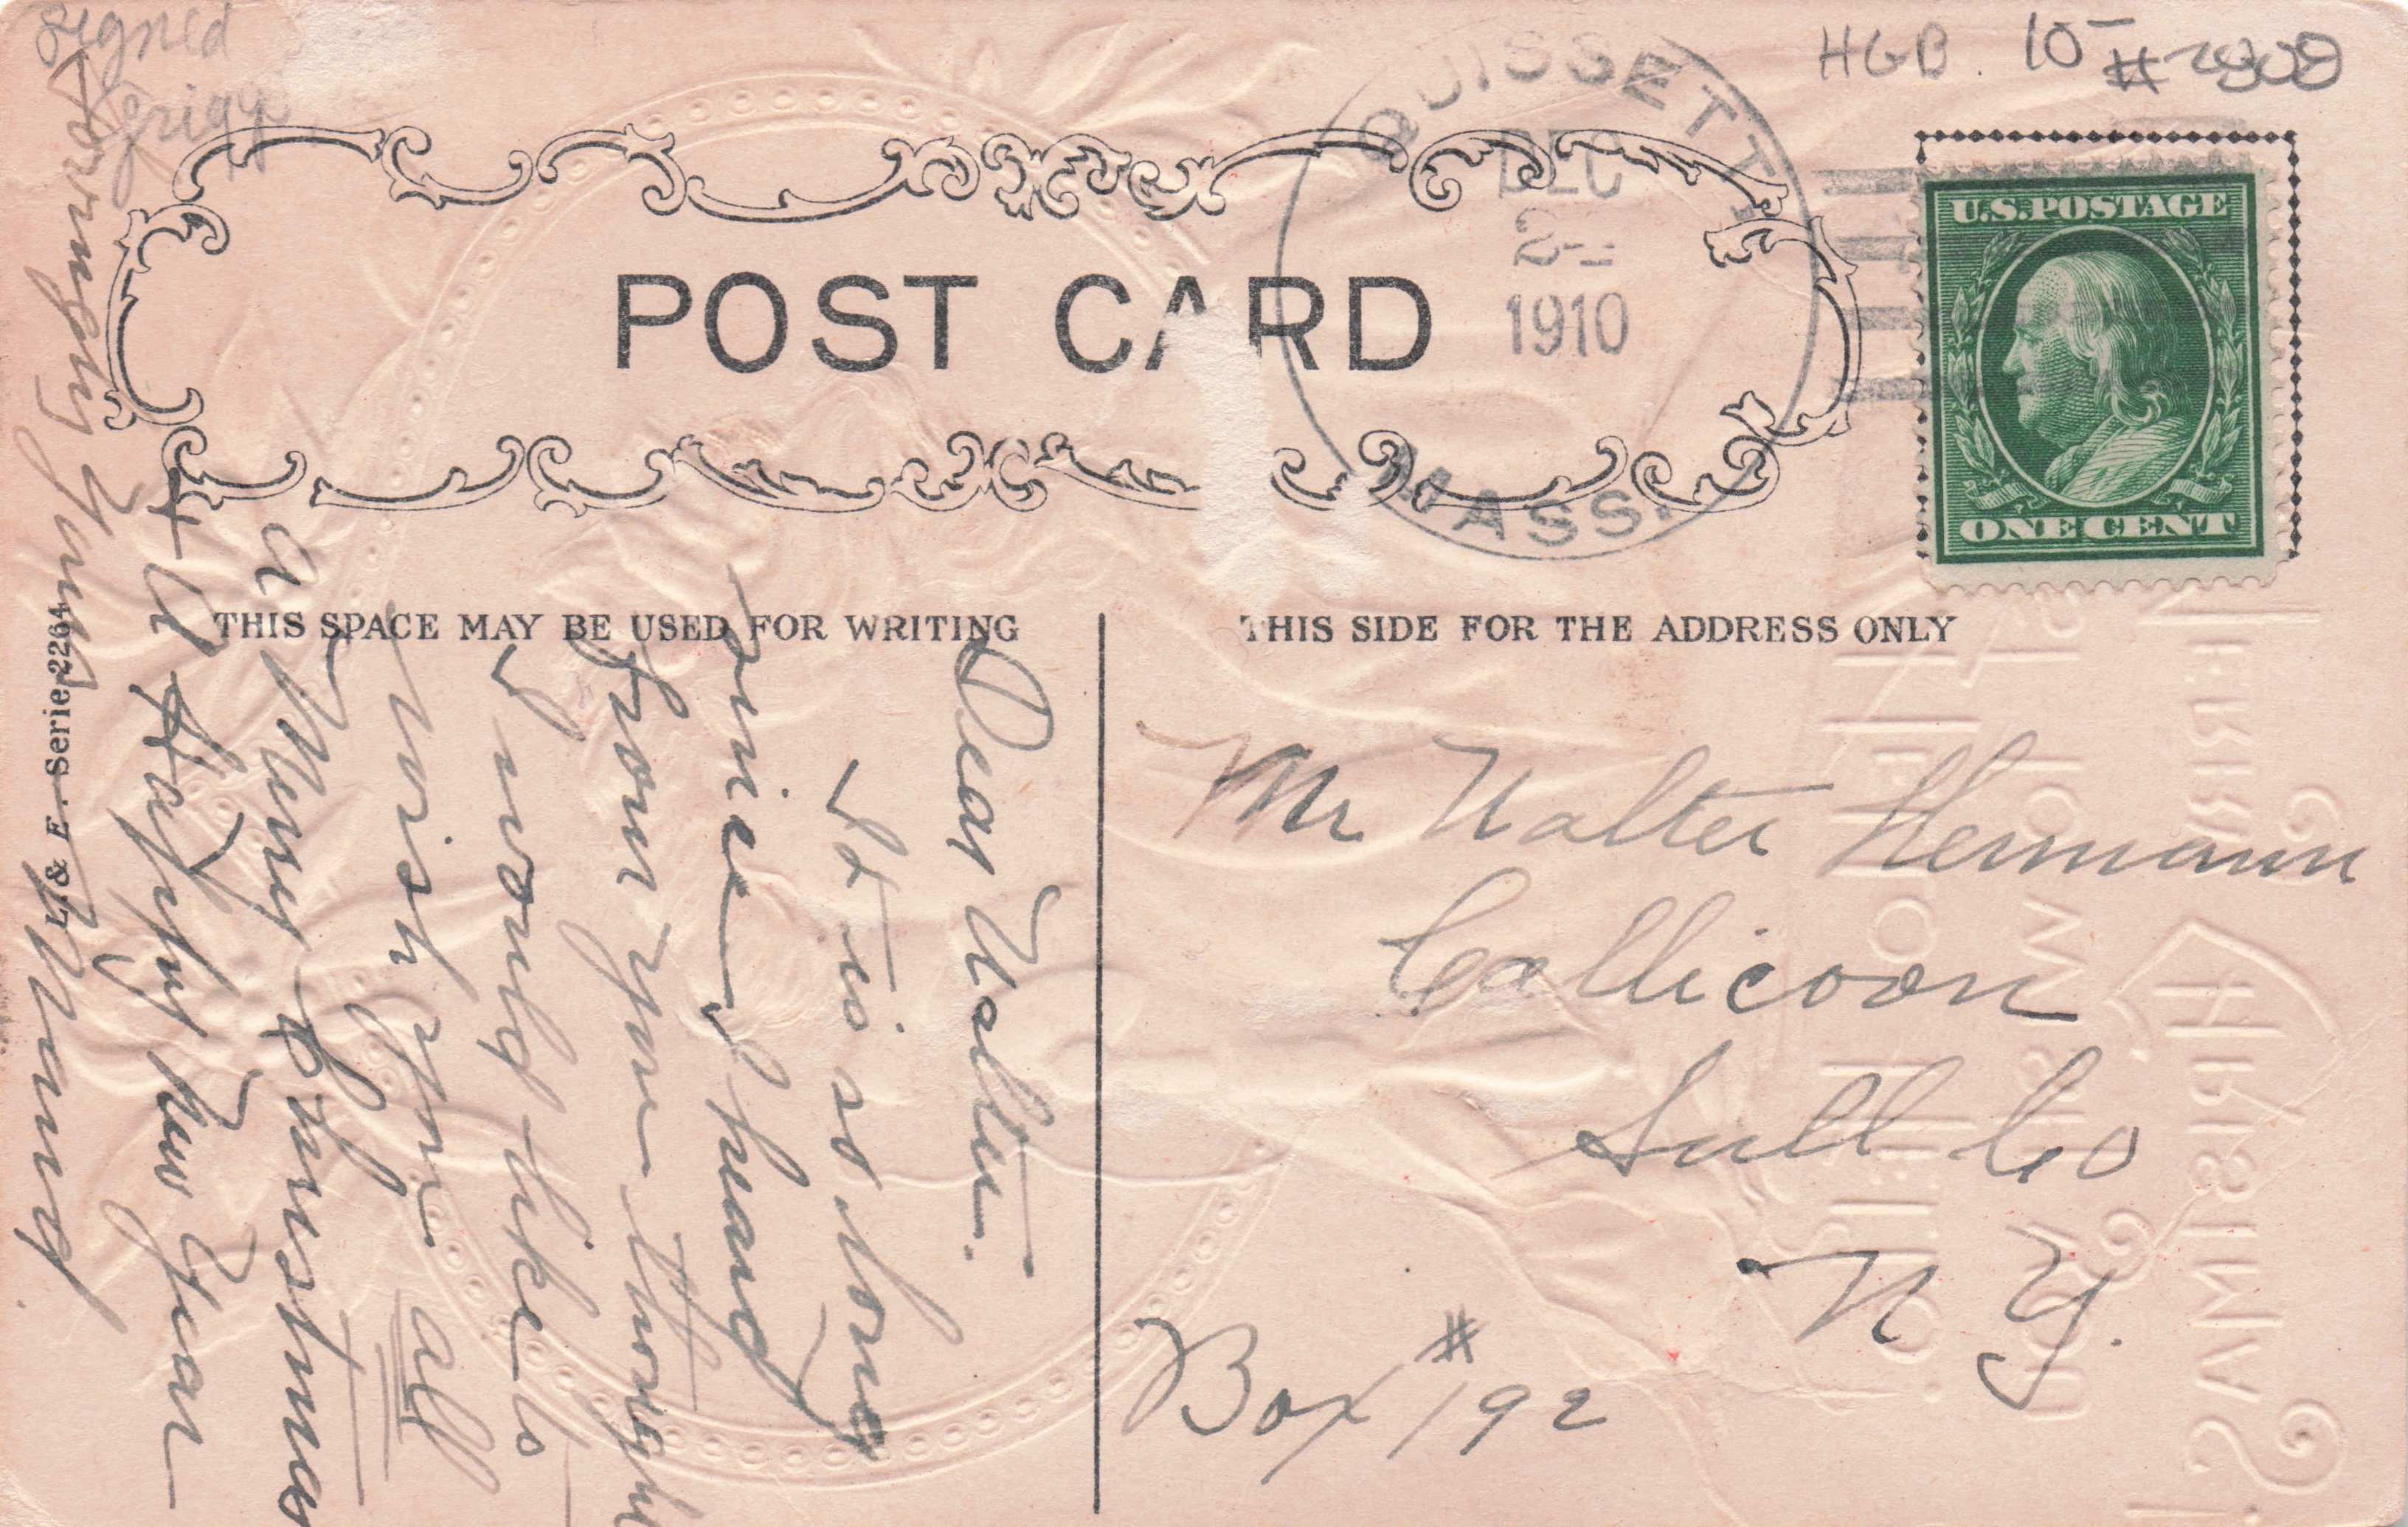 signed
HGB. 10-
QUISSETT
DEC
2
1910
MASS.
U.S. POSTAGE
ONE CENT
POST CARD
THIS SPACE MAY BE USED FOR WRITING
THIS SIDE FOR THE ADDRESS ONLY
& E. Serie 2264
Dear Walter.
It is so long
since I heard
from you thought
I would like to
wish you all
a Merry Christmas
+ a Happy New Year
Lovingly Yours
Mr Walter Hermann
Callicoon
Sull Co
N Y.
Box #192